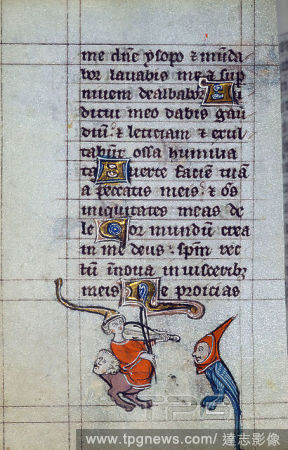 me dñe ysopo ⁊ munda
bor lavabis me ⁊ sup
nivem dealbabor Au
ditui meo dabis gau
diũ ⁊ leticiam ⁊ exul
tabũt ossa humilia
ta Averte faciẽ tuã
a peccatis meis ⁊ oẽs
iniquitates meas de
le Cor mundũ crea
in me deus ⁊ spm̃ rec
tũ innova in visceribꝫ
meis Ne proicias
www.tpgnews.com / 達志影像